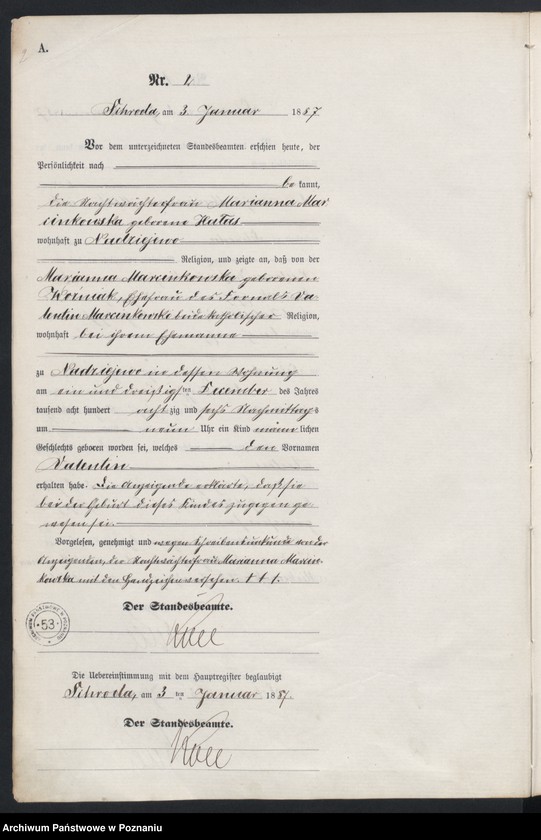 2
A.
Nr. 1.
Schroda, am 3. Januar 1887
Vor dem unterzeichneten Standesbeamten erschien heute, der
Persönlichkeit nach
be kannt,
die Nachtwächterfrau Marianna Mar
cinkowska geborene Halas
wohnhaft zu Nadziejewo
Religion, und zeigte an, daß von der
Marianna Marcinkowska geborenen
Woźniak, Ehefrau des Fornal's Va-
lentin Marcinkowski beide katholischer Religion,
wohnhaft bei ihrem Ehemanne
zu Nadziejewo in dessen Wohnung
am ein und dreißigsten December des Jahres
tausend acht hundert acht zig und sechs Nachmittags
um neun Uhr ein Kind männ lichen
Geschlechts geboren worden sei, welches den Vornamen
Valentin
erhalten habe. Die Anzeigende erklärte, daß sie
bei der Geburt dieses Kindes zugegen ge-
wesen sei.
Vorgelesen, genehmigt und wegen Schreibensunkunde von der
Anzeigenden, der Nachtwächterfrau Marianna Marcin-
kowska mit den Handzeichen versehen. + + +.
Der Standesbeamte.
53
Die Uebereinstimmung mit dem Hauptregister beglaubigt
Schroda, am 3 ten Januar 1887.
Der Standesbeamte.
Archiwum Państwowe w Poznaniu